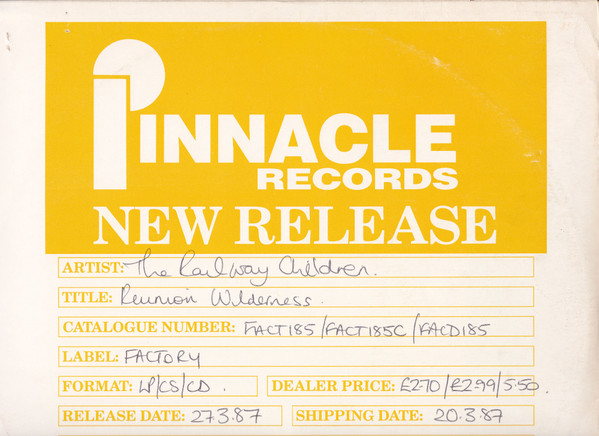 PINNACLE
RECORDS
NEW RELEASE
ARTIST: The Railway Children.
TITLE: Reunion Wilderness.
CATALOGUE NUMBER: FACT185/FACT185C/FACD185
LABEL: FACTORY
FORMAT: LP/CS/CD. DEALER PRICE: £2.70/£2.99/5.50.
RELEASE DATE: 27.3.87 SHIPPING DATE: 20.3.87